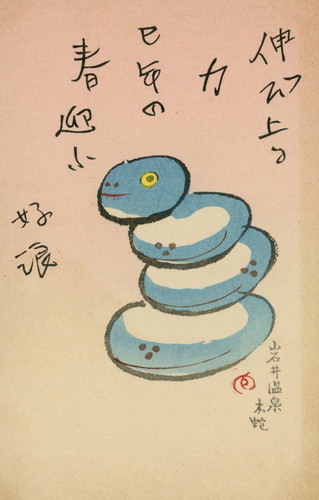 伸び上る
力
巳年の
春迎ふ
好浪
岩井温泉
木蛇